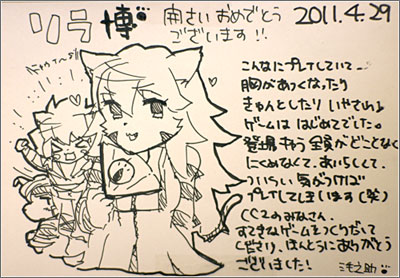 ソラ博
開さいおめでとう
ございます!!
2011.4.29
こんなにプレイしていて
胸があつくなったり
きゅんとしたり いやされる
ゲームは はじめてでした。
登場キャラ全員がどことなく
にくめなくて、あいらしくて、
ついつい気がつけば
プレイしてしまいます(笑)
CC2のみなさん、
すてきなゲームをつくりだして
くださり、ほんとうにありがとう
ございました!